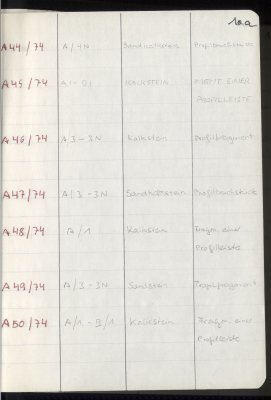 10a
A44/74 A/4N Sandkalkstein Profilbruchstück
A45/74 A1-B1 KALKSTEIN FRGMT EINER
PROFILLEISTE
A46/74 A3-3N Kalkstein Profilfragment
A47/74 A/3-3N Sandkalkstein Profilbruchstück
A48/74 A/1 Kalkstein Fragm. einer
Profilleiste
A49/74 A/3-3N Sandstein Profilfragment
A50/74 A/1-B/1 Kalkstein Fragm. einer
Profilleiste